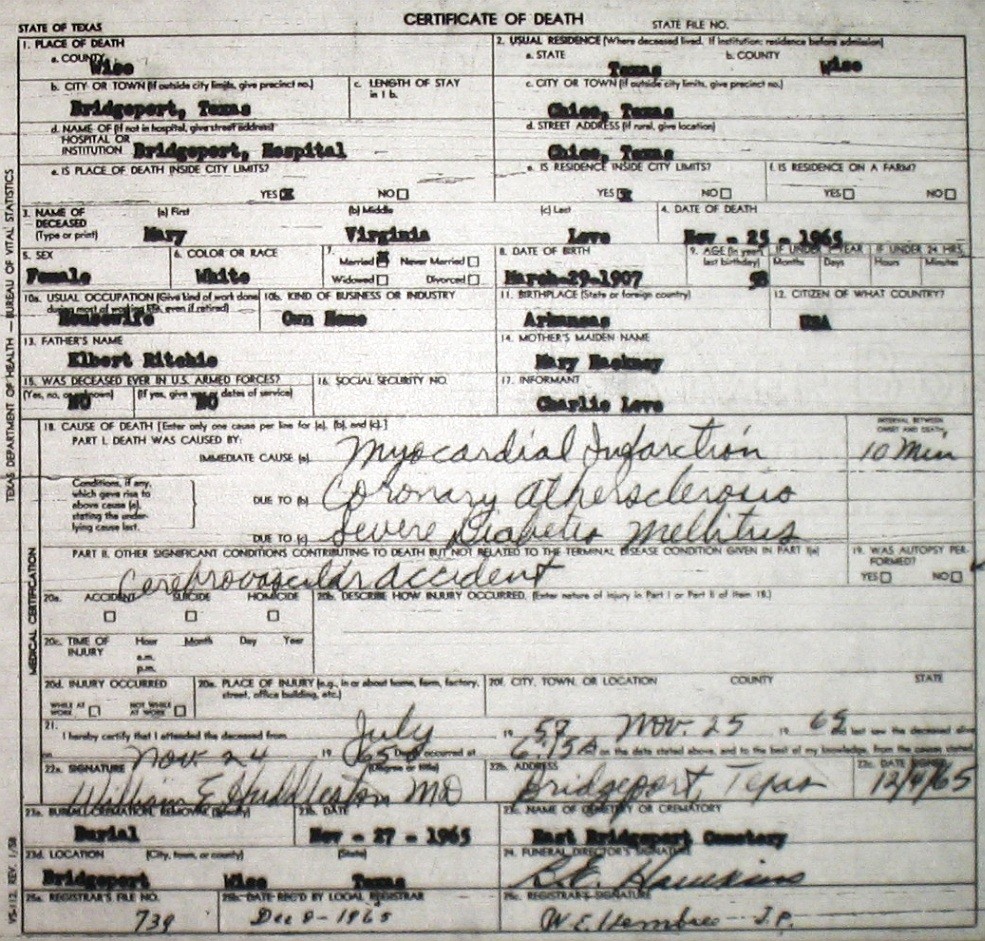 STATE OF TEXAS
CERTIFICATE OF DEATH
STATE FILE NO.
TEXAS DEPARTMENT OF HEALTH — BUREAU OF VITAL STATISTICS
1. PLACE OF DEATH
a. COUNTY
Wise
2. USUAL RESIDENCE (Where deceased lived. If institution: residence before admission)
a. STATE
Texas
b. COUNTY
Wise
b. CITY OR TOWN (If outside city limits, give precinct no.)
Bridgeport, Texas
c. LENGTH OF STAY
in 1 b.
c. CITY OR TOWN (If outside city limits, give precinct no.)
Chico, Texas
d. NAME OF (If not in hospital, give street address)
HOSPITAL OR
INSTITUTION Bridgeport, Hospital
d. STREET ADDRESS (If rural, give location)
Chico, Texas
e. IS PLACE OF DEATH INSIDE CITY LIMITS?
YES X NO
e. IS RESIDENCE INSIDE CITY LIMITS?
YES X NO
f. IS RESIDENCE ON A FARM?
YES NO
3. NAME OF
DECEASED
(Type or print)
(a) First
Mary
(b) Middle
Virginia
(c) Last
Love
4. DATE OF DEATH
Nov - 25 - 1965
5. SEX
Female
6. COLOR OR RACE
White
7.
Married X Never Married
Widowed Divorced
8. DATE OF BIRTH
March-29-1907
9. AGE (In years
last birthday)
58
IF UNDER 1 YEAR
Months Days
IF UNDER 24 HRS.
Hours Minutes
10a. USUAL OCCUPATION (Give kind of work done
during most of working life, even if retired)
Housewife
10b. KIND OF BUSINESS OR INDUSTRY
Own Home
11. BIRTHPLACE (State or foreign country)
Arkansas
12. CITIZEN OF WHAT COUNTRY?
USA
13. FATHER'S NAME
Elbert Ritchie
14. MOTHER'S MAIDEN NAME
Mary Hackney
15. WAS DECEASED EVER IN U.S. ARMED FORCES?
(Yes, no, or unknown)
NO
(If yes, give war or dates of service)
NO
16. SOCIAL SECURITY NO.
17. INFORMANT
Charlie Love
MEDICAL CERTIFICATION
18. CAUSE OF DEATH [Enter only one cause per line for (a), (b), and (c).]
PART I. DEATH WAS CAUSED BY:
IMMEDIATE CAUSE (a) Myocardial Infarction
INTERVAL BETWEEN
ONSET AND DEATH
10 Min
Conditions, if any,
which gave rise to
above cause (a),
stating the under-
lying cause last.
DUE TO (b) Coronary Athersclerosis
DUE TO (c) Severe Diabetis Mellitus
PART II. OTHER SIGNIFICANT CONDITIONS CONTRIBUTING TO DEATH BUT NOT RELATED TO THE TERMINAL DISEASE CONDITION GIVEN IN PART I(a)
Cerebrovascular accident
19. WAS AUTOPSY PER-
FORMED?
YES NO
20a. ACCIDENT SUICIDE HOMICIDE
20b. DESCRIBE HOW INJURY OCCURRED. (Enter nature of injury in Part I or Part II of item 18.)
20c. TIME OF
INJURY
Hour Month Day Year
a.m.
p.m.
20d. INJURY OCCURRED
WHILE AT
WORK
NOT WHILE
AT WORK
20e. PLACE OF INJURY (e.g., in or about home, farm, factory,
street, office building, etc.)
20f. CITY, TOWN, OR LOCATION COUNTY STATE
21.
I hereby certify that I attended the deceased from July 19 57 Nov. 25 19 65 and last saw the deceased alive
on Nov. 24 19 65 Death occurred at 6:15 A m on the date stated above, and to the best of my knowledge, from the causes stated.
22a. SIGNATURE (Degree or title)
William E Huddleston MD
22b. ADDRESS
Bridgeport, Texas
22c. DATE SIGNED
12/4/65
23a. BURIAL, CREMATION, REMOVAL (Specify)
Burial
23b. DATE
Nov - 27 - 1965
23c. NAME OF CEMETERY OR CREMATORY
East Bridgeport Cemetery
23d. LOCATION (City, town, or county) (State)
Bridgeport Wise Texas
24. FUNERAL DIRECTOR'S SIGNATURE
B.E. Hawkins
25a. REGISTRAR'S FILE NO.
739
25b. DATE REC'D BY LOCAL REGISTRAR
Dec 8 - 1965
25c. REGISTRAR'S SIGNATURE
W.E. Hembree J.P.
VS-112, REV. 1/58